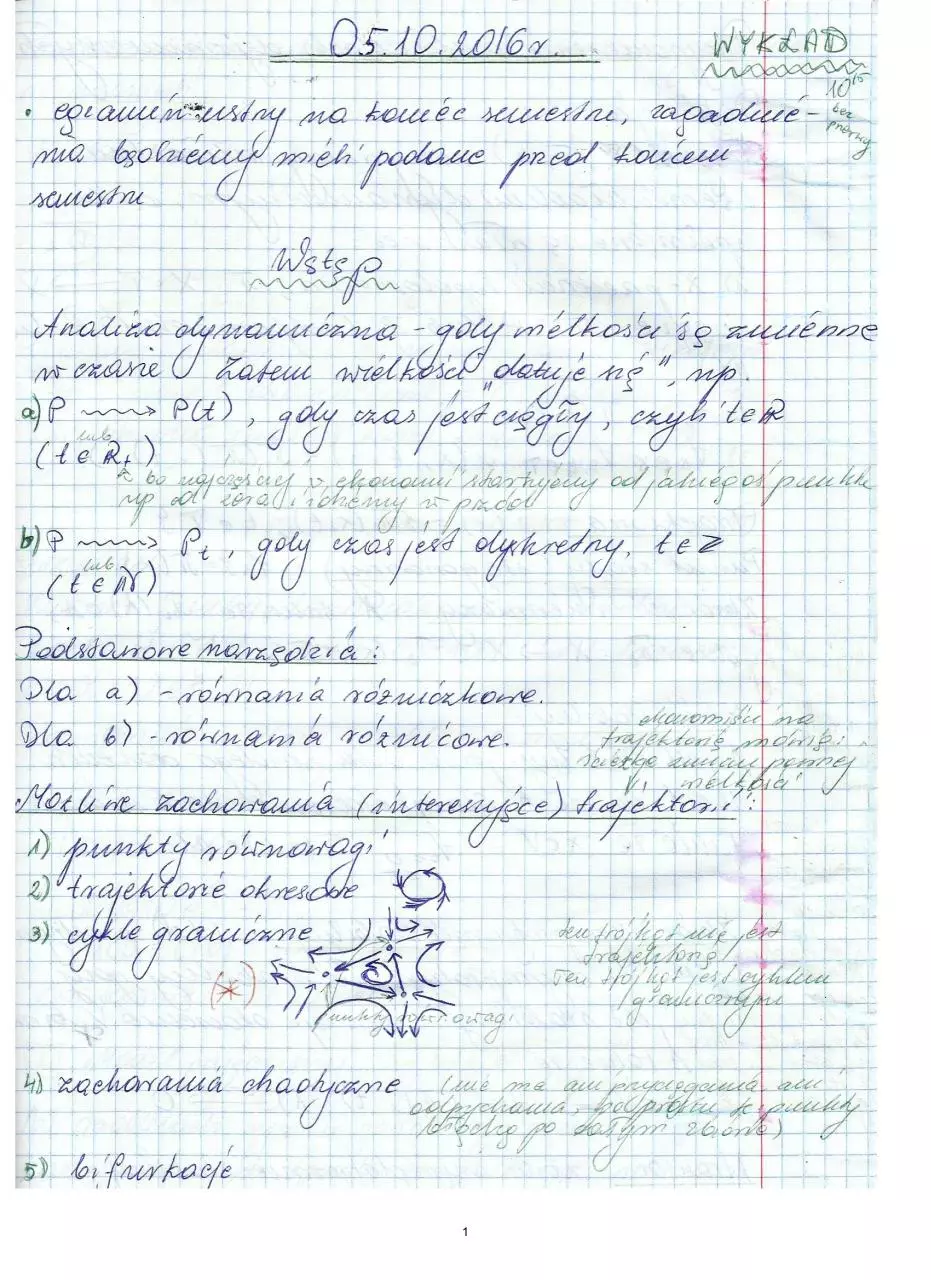 05.10.2016r.
WYKŁAD
10¹⁵
bez
przerwy
• egzamin ustny na koniec semestru, zagadnie-
nia będziemy mieli podane przed końcem
semestru
Wstęp
Analiza dynamiczna - gdy wielkości są zmienne
w czasie. Zatem wielkości "datuje się", np.
a) P ⟿ P(t), gdy czas jest ciągły, czyli t∈ℝ
lub
(t∈ℝ₊)
bo najczęściej w ekonomii startujemy od jakiegoś punktu
np od zera i idziemy w przód
b) P ⟿ Pₜ, gdy czas jest dyskretny, t∈ℤ
lub
(t∈ℕ)
Podstawowe narzędzia:
Dla a) - równania różniczkowe.
Dla b) - równania różnicowe.
ekonomiści na
trajektorię mówią:
ścieżka zmian pewnej
wielkości
Możliwe zachowania (interesujące) trajektorii:
1) punkty równowagi
2) trajektorie okresowe
3) cykle graniczne
ten trójkąt nie jest
trajektorią
Ten trójkąt jest cyklem
granicznym
(*)
punkty równowagi
4) zachowania chaotyczne (nie ma ani przyciągania ani
odpychania, po prostu te punkty
błądzą po całym zbiorze)
5) bifurkacje
1